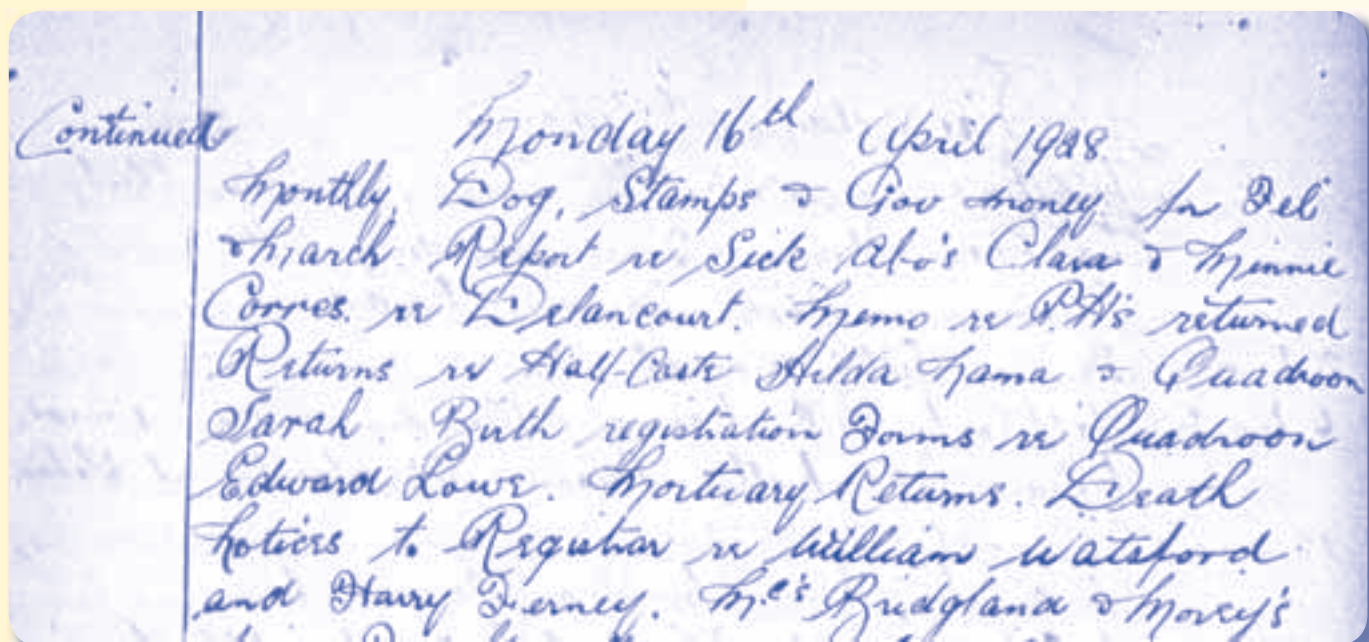 Continued
Monday 16th April 1928.
Monthly, Dog, Stamps & Gov money for Feb
& March Report re Sick Abo's Clara & Minnie
Corres. re Delancourt. Memo re P.H's returned
Returns re Half-Caste Hilda Mama & Quadroon
Sarah. Birth registration Forms re Quadroon
Edward Lowe. Mortuary Returns. Death
Notices to Registrar re William Watsford
and Harry Tierney. Mc's Bridgland & Morey's